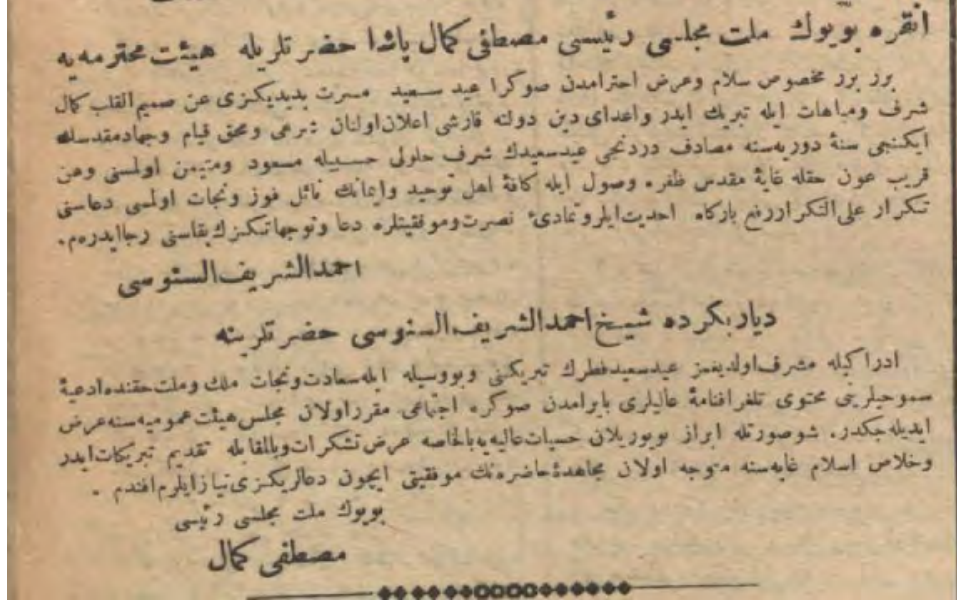 انقره بويوك ملت مجلسى رئيسى مصطفى كمال پاشا حضرتلريله هيئت محترمه‌يه
برر برر مخصوص سلام وعرض احترامدن صوكرا عيد سعيد مسرت بديديكزى عن صميم القلب كمال
شرف ومباهات ايله تبريك ايدر واعداى دين دولته قارشى اعلان اولنان شرعى ومحق قيام وجهاد مقدسك
ايكنجى سنۀ دوريه‌سنه مصادف دردنجى عيد سعيدك شرف حلولى حسبيله مسعود ومتيمن اولمسنى وعن
قريب عون حقله غايۀ مقدس ظفره وصول ايله كافۀ اهل توحيد وايمانك نائل فوز ونجات اولمسى دعاسنى
تكرار على التكرار رفع باركاه احديت ايلر وتمادئ نصرت وموفقيتلره دعا وتوجهاتكزك بقاسنى رجا ايدرم.
احمد الشريف السنوسى
دياربكرده شيخ احمد الشريف السنوسى حضرتلرينه
ادراكيله مشرف اولديغمز عيد سعيد فطرك تبريكنى وبووسيله ايله سعادت ونجات ملك وملت حقنده ادعيۀ
سموحيلرينى محتوى تلغرافنامۀ عاليلرى بايرامدن صوكره اجتماعى مقرر اولان مجلس هيئت عموميه‌سنه عرض
ايديله‌جكدر. شوصورتله ابراز بويوريلان حسيات عاليه‌يه بالخاصه عرض تشكرات وبالمقابله تقديم تبريكات ايدر
وخلاص اسلام غايه‌سنه متوجه اولان مجاهدۀ حاضره‌نك موفقيتى ايچون دعالريكزى نياز ايلرم افندم.
بويوك ملت مجلسى رئيسى
مصطفى كمال